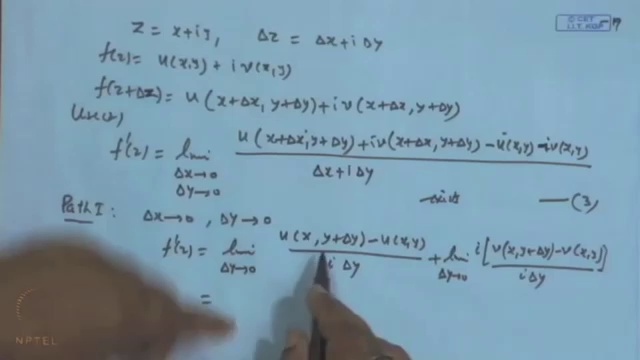 z = x+iy, Δz = Δx+iΔy
f(z) = u(x,y) + i v(x,y)
f(z+Δz) = u(x+Δx, y+Δy) + i v(x+Δx, y+Δy)
f'(z) = lim Δx→0 Δy→0 u(x+Δx, y+Δy) + iv(x+Δx, y+Δy) - u(x,y) - iv(x,y) / Δx+iΔy
exists —(3)
Path I: Δx→0, Δy→0
f'(z) = lim Δy→0 u(x, y+Δy) - u(x,y) / iΔy + lim Δy→0 i[v(x,y+Δy) - v(x,y)] / iΔy
=
NPTEL